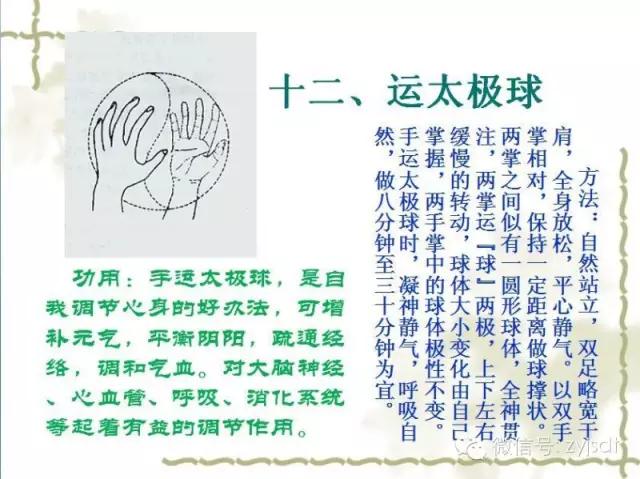 十二、运太极球
方法：自然站立，双足略宽于
肩，全身放松，平心静气。以双手
掌相对，保持一定距离做球撑状。
两掌之间似有一圆形球体，全神贯
注，两掌运『球』两极，上下左右
缓慢的转动，球体大小变化由自己
掌握，两手掌中的球体极性不变。
手运太极球时，凝神静气，呼吸自
然，做八分钟至三十分钟为宜。
功用：手运太极球，是自
我调节心身的好办法，可增
补元气，平衡阴阳，疏通经
络，调和气血。对大脑神经
、心血管、呼吸、消化系统
等起着有益的调节作用。
微信号: zyjsdr